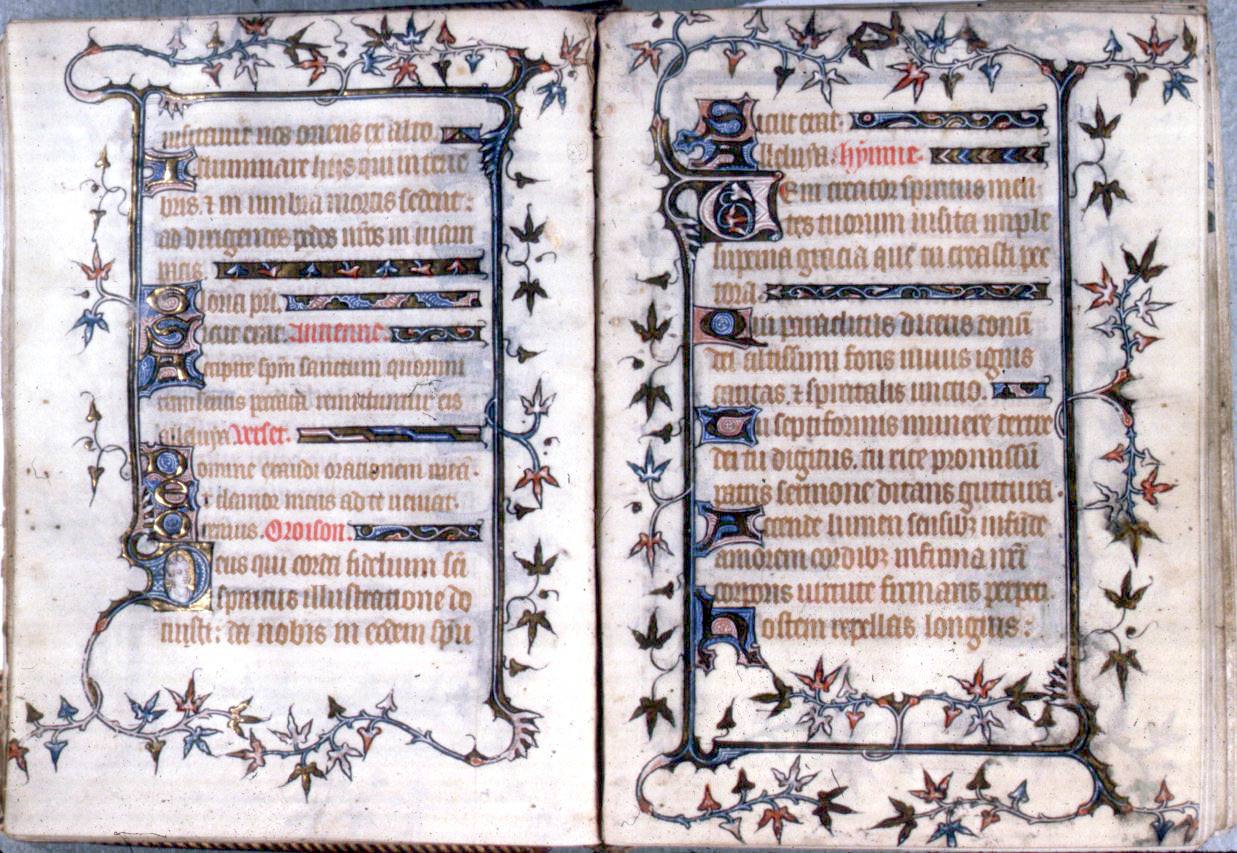 uisitauit nos oriens ex alto.
Illuminare hijs qui in tene
bris. ⁊ in umbra mortis sedent:
ad dirigendos pedes nr̄os in uiam
pacis.
Gloria pr̄i.
Sicut erat. Antienne.
Accipite sp̄m sanctum quorum
remiseritis peccata remittuntur eis
alleluya Verset.
Domine exaudi orationem meā.
Et clamor meus ad te ueniat.
Oremus. Oroison.
Deus qui corda fidelium sc̄i
spiritus illustratione do
cuisti: da nobis in eodem sp̄u
Sicut erat.
Alleluya. hymne.
Veni creator spiritus men
tes tuorum uisita imple
superna gracia que tu creasti pec
tora.
Qui paraclitus diceris donū
dei altissimi fons uiuus ignis
caritas. ⁊ spiritalis unctio.
Tu septiformis munere dextre
dei tu digitus. tu rite promissū
patris sermone ditans guttura.
Accende lumen sensibꝫ infūde
amorem cordibꝫ infirma nr̄i
corporis uirtute firmans perpeti.
Hostem repellas longius: